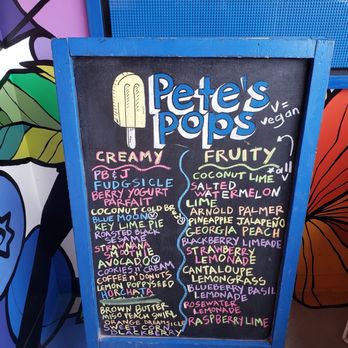 Pete's
Pops
V=
vegan
CREAMY
PB & J
FUDGSICLE
BERRY YOGURT
PARFAIT
COCONUT COLD BREW
BLUE MOON
KEY LIME PIE
ROASTED BLACK
SESAME
STRAWNANA
SMOOTHIE
AVOCADO V
COOKIES N CREAM
COFFEE N' DONUTS
LEMON POPPYSEED
HORCHATA
BROWN BUTTER
MISO PEACH SWIRL
ORANGE DREAMSICLE
SWEET CORN
BLACKBERRY
FRUITY
*all
V
COCONUT LIME
SALTED
WATERMELON
LIME
ARNOLD PALMER
PINEAPPLE JALAPEÑO
GEORGIA PEACH
BLACKBERRY LIMEADE
STRAWBERRY
LEMONADE
CANTALOUPE
LEMONGRASS
BLUEBERRY BASIL
LEMONADE
ROSEWATER
LEMONADE
RASPBERRY LIME